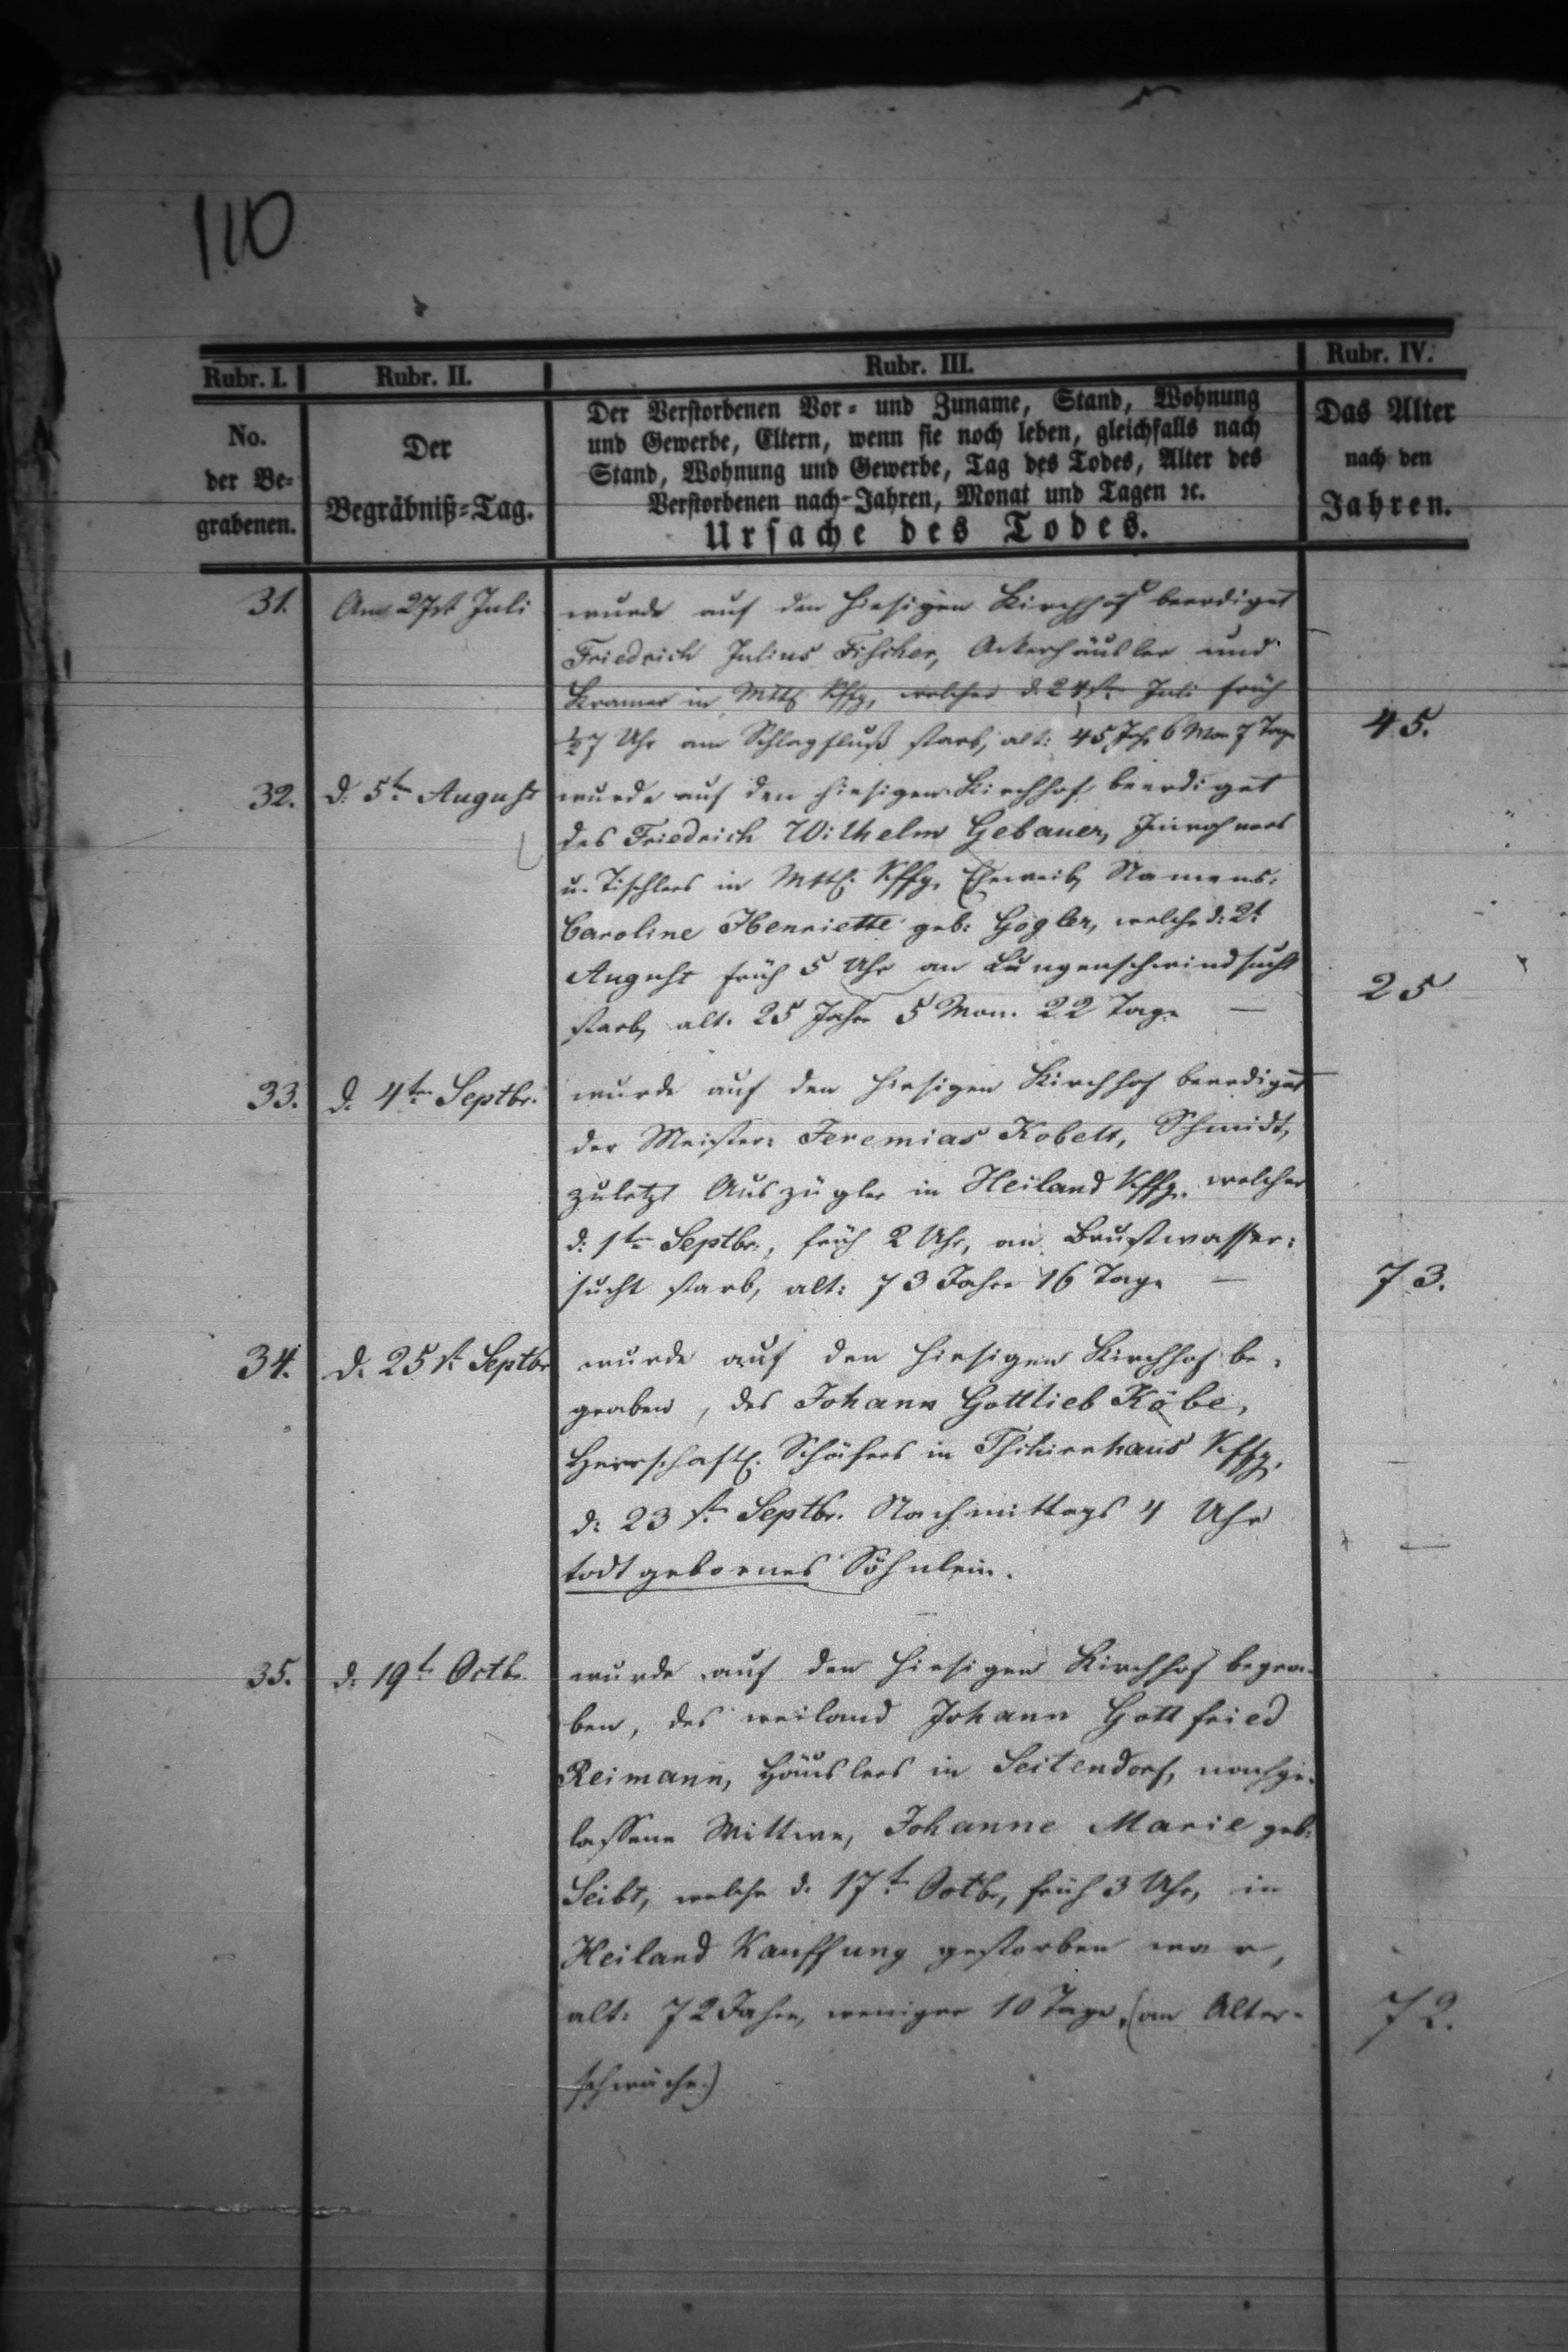 110
Rubr. I. Rubr. II. Rubr. III. Rubr. IV.
No.
der Be-
grabenen.
Der
Begräbniß-Tag.
Der Verstorbenen Vor- und Zuname, Stand, Wohnung
und Gewerbe, Eltern, wenn sie noch leben, gleichfalls nach
Stand, Wohnung und Gewerbe, Tag des Todes, Alter des
Verstorbenen nach Jahren, Monat und Tagen ꝛc.
Ursache des Todes.
Das Alter
nach den
Jahren.
31. Am 27st Juli wurde auf den hiesigen Kirchhof beerdiget
Friedrich Julius Fischer, Ackerhäusler und
Kramer in Mttl Kffg, welcher d. 24st. Juli früh
½7 Uhr am Schlagfluß starb, alt: 45 Jhr 6 Mon 7 Tage 45.
32. d. 5ten August wurde auf den hiesigen Kirchhof beerdiget
des Friedrich Wilhelm Gebauer, Inwohners
u. Tischlers in Mttl. Kffg, Eheweib, Namens:
Caroline Henriette geb: Gögler, welche d: 2t
August früh 5 Uhr an Lungenschwindsucht
starb, alt. 25 Jahr 5 Mon. 22 Tage — 25
33. d. 4ten Septbr. wurde auf den hiesigen Kirchhof beerdiget
der Meister: Jeremias Kobelt, Schmidt,
zuletzt Auszügler in Heiland Kffg. welcher
d: 1ten Septbr., früh 2 Uhr, an Brustwasser:
sucht starb, alt: 73 Jahre 16 Tage — 73.
34. d. 25st. Septbr wurde auf den hiesigen Kirchhof be-
graben, des Johann Gottlieb Köbe,
Herrschaftl. Schäfers in Tschirnhaus Kffg.
d: 23st. Septbr. Nachmittags 4 Uhr
todt gebornes Söhnlein. —
35. d: 19t. Octbr. wurde auf den hiesigen Kirchhof begra-
ben, des weiland Johann Gottfried
Reimann, Häuslers in Seitendorf, nachge-
lassene Wittwe, Johanne Marie geb:
Seibt, welche d. 17t. Octbr, früh 3 Uhr, in
Heiland Kauffung gestorben war,
alt: 72 Jahre, weniger 10 Tage, (an Alter- 72.
schwäche.)